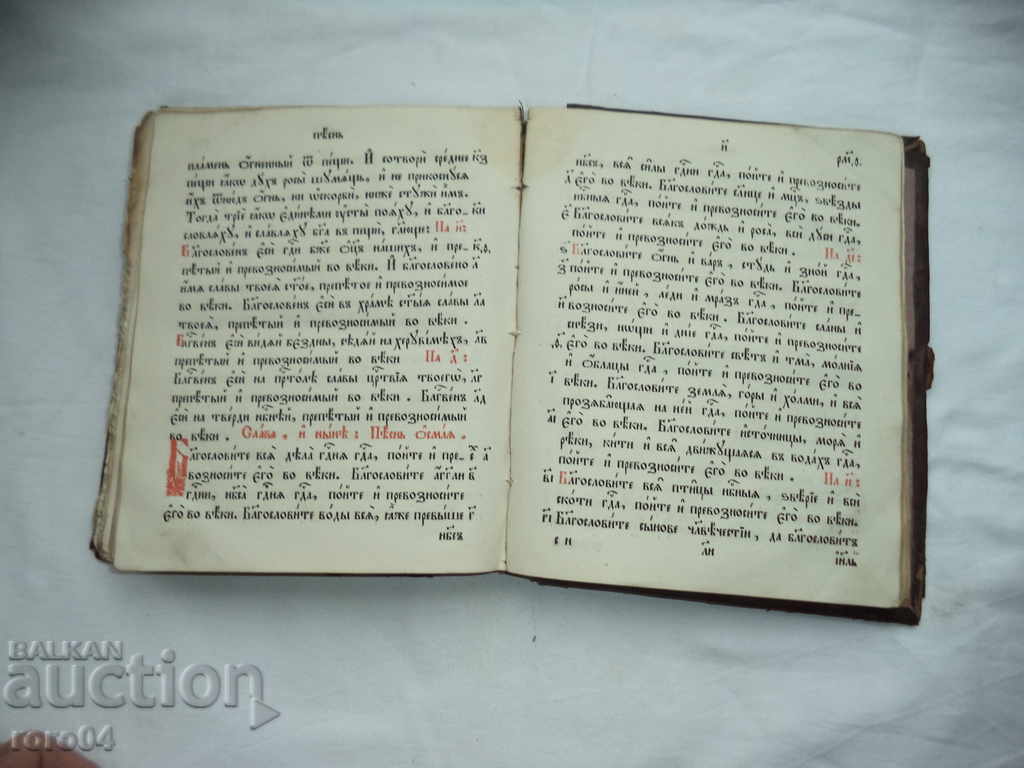 пѣснь
пламень ѻ҆́гненный ѿ пе́щи. И҆ сотворѝ сре́днее к҃з
пе́щи ꙗ҆́кѡ дꙋ́хъ росы̀ шꙋмѧ́щь, и҆ не прикоснꙋ́сѧ
и҆́хъ ѿню́дъ ѻ҆́гнь, ни ѡ҆скорбѝ, нижѐ стꙋжѝ и҆̀мъ.
Тогда̀ трїѐ ꙗ҆́кѡ є҆ди́нѣми ᲂу҆сты̀ поѧ́хꙋ, и҆ благо- к҃и
словлѧ́хꙋ, и҆ славлѧ́хꙋ бг҃а въ пещѝ, гл҃ще: На и҃:
Блгⷭ҇ове́нъ є҆сѝ гдⷭ҇и бж҃е ѻ҆тє́цъ на́шихъ, и҆ пре- к҃ѳ
пѣ́тый и҆ превозноси́мый во вѣ́ки. И҆ благослове́но л҃
и҆́мѧ сла́вы твоеѧ̀ ст҃о́е, препѣ́тое и҆ превозноси́мое
во вѣ́ки. Блгⷭ҇ове́нъ є҆сѝ въ хра́мѣ ст҃ы́ѧ сла́вы л҃а
твоеѧ̀, препѣ́тый и҆ превозноси́мый во вѣ́ки.
Блгⷭ҇ве́нъ є҆сѝ ви́дѧй бє́здны, сѣдѧ́й на херꙋві́мѣхъ, л҃в
препѣ́тый и҆ превозноси́мый во вѣ́ки На д҃:
Блгⷭ҇ве́нъ є҆сѝ на прⷭ҇то́лѣ сла́вы црⷭ҇твїѧ твоегѡ̀, л҃г
препѣ́тый и҆ превозноси́мый во вѣ́ки. Блгⷭ҇ве́нъ л҃д
є҆сѝ на тве́рди нбⷭ҇нѣй, препѣ́тый и҆ превозноси́мый
во вѣ́ки. Сла́ва, и҆ ны́нѣ: Пѣ́снь ѻ҆сма́ѧ.
Благослови́те всѧ̑ дѣла̀ гдⷭ҇нѧ гдⷭ҇а, по́йте и҆ пре- є҃ а҃
возноси́те є҆го̀ во вѣ́ки. Блгⷭ҇ови́те а҆́гг҃ли в҃
гдⷭ҇ни, нб҃са̀ гдⷭ҇нѧ гдⷭ҇а, по́йте и҆ превозноси́те
є҆го̀ во вѣ́ки. Блгⷭ҇ови́те во́ды всѧ̑, ꙗ҆̀же превы́ше г҃
нб҃съ
и҃ рм҃ѳ.
нб҃съ, всѧ̑ си̑лы гдⷭ҇ни гдⷭ҇а, по́йте и҆ превозноси́те
д҃ є҆го̀ во вѣ́ки. Благослови́те сл҃нце и҆ мц҃ъ, ѕвѣ́зды
нбⷭ҇ныѧ гдⷭ҇а, по́йте и҆ превозноси́те є҆го̀ во вѣ́ки.
є҃ Благослови́те всѧ́къ до́ждь и҆ роса̀, всѝ дꙋ́си гдⷭ҇а,
по́йте и҆ превозноси́те є҆го̀ во вѣ́ки. На є҃:
ѕ҃ Благослови́те ѻ҆́гнь и҆ ва́ръ, стꙋ́дь и҆ зно́й гдⷭ҇а,
з҃ по́йте и҆ превозноси́те є҆го̀ во вѣ́ки. Благослови́те
ро́сы и҆ и҆́ней, ле́ди и҆ мра́зъ гдⷭ҇а, по́йте и҆ пре-
и҃ возноси́те є҆го̀ во вѣ́ки. Благослови́те сла̑ны и҆
снѣ́зи, но́щи и҆ дні́е гдⷭ҇а, по́йте и҆ превозноси́те
ѳ҃. є҆го̀ во вѣ́ки. Благослови́те свѣ́тъ и҆ тма̀, мѡ́лнїѧ
и҆ ѻ҆́блацы гдⷭ҇а, по́йте и҆ превозноси́те є҆го̀ во
і҃ вѣ́ки. Благослови́те землѧ̀, го́ры и҆ хо́лми, и҆ всѧ̑
прозѧба́ющаѧ на не́й гдⷭ҇а, по́йте и҆ превозноси́те
а҃і є҆го̀ во вѣ́ки. Благослови́те и҆сто́чницы, морѧ̀ и҆
рѣ́ки, ки́ти и҆ всѧ̑ дви́жꙋщаѧсѧ въ вода́хъ гдⷭ҇а,
по́йте и҆ превозноси́те є҆го̀ во вѣ́ки. На и҃:
в҃і Благослови́те всѧ̑ пти̑цы нбⷭ҇ныѧ, ѕвѣ́рїе и҆ всѝ
ско́ти гдⷭ҇а, по́йте и҆ превозноси́те є҆го̀ во вѣ́ки.
г҃і Благослови́те сы́нове человѣ́честїи, да благослови́тъ
в н л҃и і҆и҃ль
BALKAN
auction
roro04